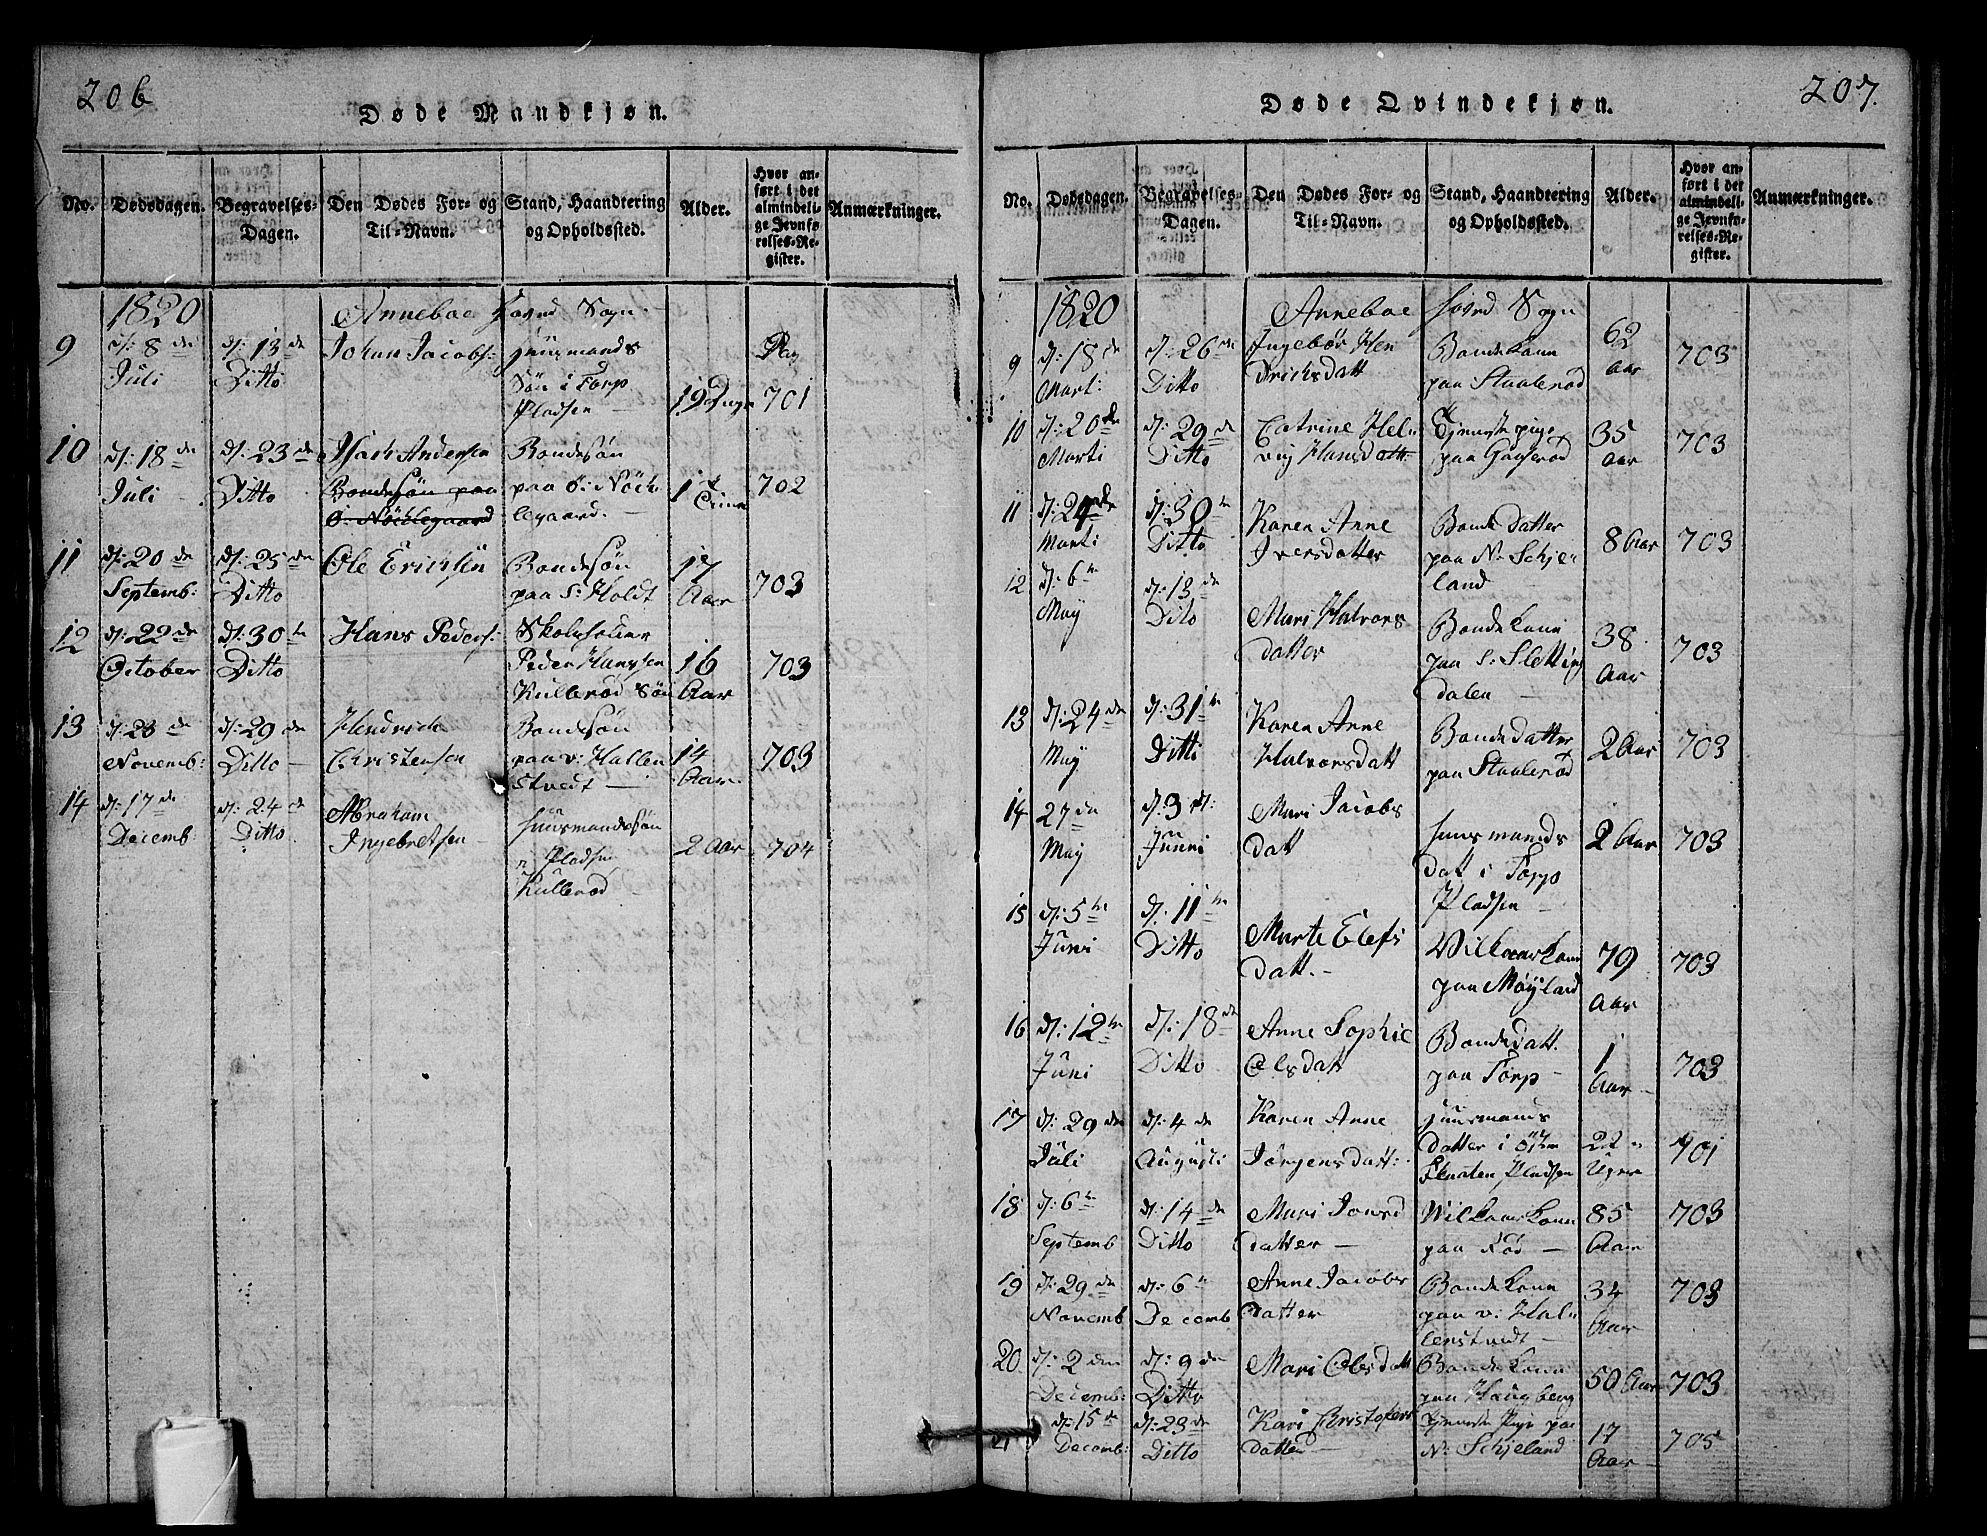 206
Døde Mandkjøn.
No. Dødsdagen. Begravelses-Dagen. Den Dødes For- og Til-Navn. Stand, Haandtering og Opholdssted. Alder. Hvor anført i det almindelige Jevnførelses-Register. Anmærkninger.
1820 Anneboe Sogn
9 d: 8de Juli
d: 13de Ditto
Johan Jacobs:
Huusmands
Søn i Torp
Pladsen
19 Dage
Pag 701
10 d: 18de Juli
d: 23de Ditto
Isach Andersen
Bondesøn paa
ø: Nöcklegaard
Bondesøn
paa ø: Nöck
legaard.
1
702
11 d: 20de Septemb:
d: 25de Ditto
Ole Erichsen
Bondesøn
paa S: Holdt
17 Aar
703
12 d: 22de October
d: 30te Ditto
Hans Peders:
Skoleholder
Peder Hansen
Kullerød Søn
16 Aar
703
13 d: 23de Novemb:
d: 29de Ditto
Hendrich
Christensen
Bondesøn
paa v: Hallen
stvedt
14 Aar
703
14 d: 17de Decemb:
d: 24de Ditto
Abraham
Ingebretsen
Huusmandssøn
Pladsen
Kullerød
2 Aar
704
207.
Døde Qvindekjøn.
No. Dødsdagen. Begravelses-Dagen. Den Dødes For- og Til-Navn. Stand, Haandtering og Opholdssted. Alder. Hvor anført i det almindelige Jevnførelses-Register. Anmærkninger.
1820 Anneboe Sogn
9 d: 18de Marti:
d: 26de Ditto
Ingebör Hen
drichsdatt
Bondekone
paa Staalerød
62 Aar
703
10 d: 20de Marti
d: 29de Ditto
Catrine Hel
vig Hansdatt.
Tjenestepige
paa Gaaserød
35 Aar
703
11 d: 24de Marti
d: 30te Ditto
Karen Anne
Iversdatter
Bondedatter
paa N: Schje
land
8 Aar
703
12 d: 6te May
d: 13de Dito
Mari Halvors
datter
Bondekone
paa S: Sletting
dalen
38 Aar
703
13 d: 24de May
d: 31te Ditti
Karen Anne
Halvorsdatt
Bondedatter
paa Staalerød
2 Aar
703
14 27de May
d: 3d: Junni
Mari Jacobs
datt
Huusmands
datt i Torp
Pladsen
2 Aar
703
15 d: 5te Juni
d: 11te Ditto
Marte Elefs
datt.
Vilkaarskone
paa Møyland
79 Aar
703
16 d: 12te Juni
d: 18de Ditto
Anne Sophie
Olsdatt
Bondedatt.
paa Torp
1 Aar
703
17 d: 29de Juli
d: 4de Augusti
Karen Anne
Jörgensdatt:
Huusmands
datter i
Pladsen
22 Uger
701
18 d: 6te Septemb
d: 14de Ditto
Mari Jonsd
datter
Wilkaarskone
paa Rød
85 Aar
703
19 d: 29de Novemb
d: 6te Decemb
Anne Jacobs
datter
Bondekone
paa v: Hal
lenstvedt
34 Aar
703
20 d: 2den Decemb:
d: 9de Ditto
Mari Olsdatt
Bondekone
paa Haugberg
50 Aar
703
21 d: 15de Decemb:
d: 23de Ditto
Kari Christofers
datter
Tjenestepige paa
N: Schjeland
17 Aar
705